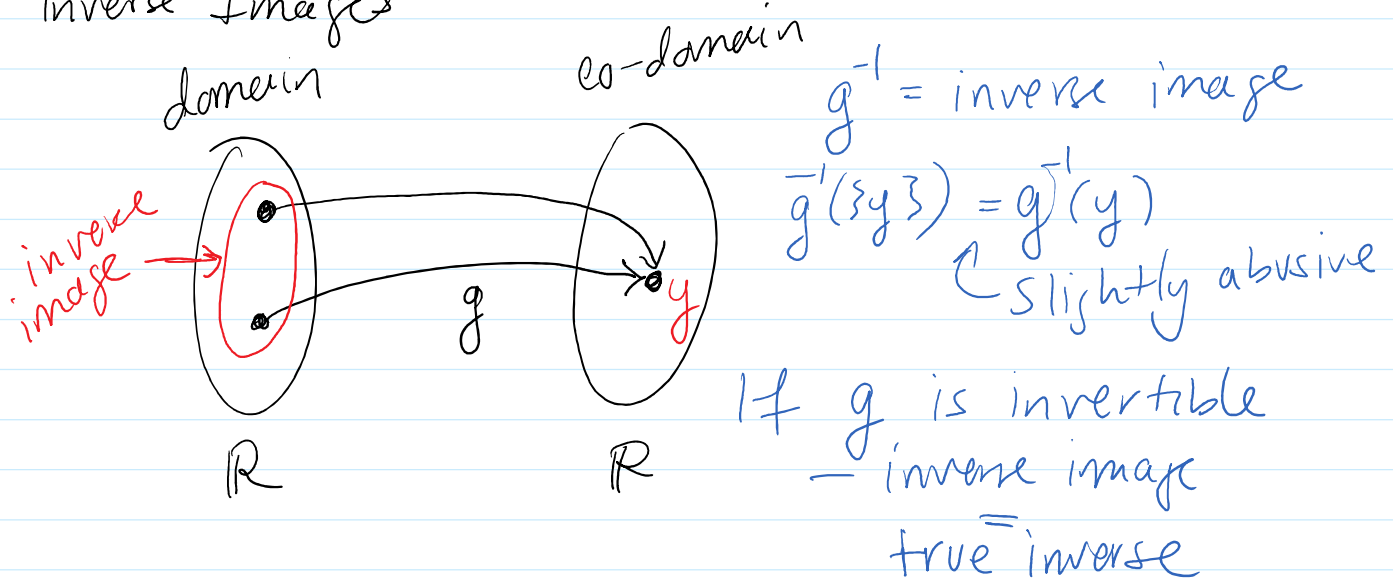 Inverse Images
domain
co-domain
inverse
image
g
y
ℝ
ℝ
g⁻¹ = inverse image
g⁻¹({y}) = g⁻¹(y)
slightly abusive
If g is invertible
– inverse image
=
true inverse